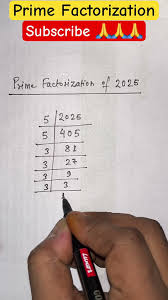 Prime Factorization
Subscribe 🙏🙏🙏
Prime Factorization of 2025
5 2025
5 405
3 81
3 27
3 9
3 3
1